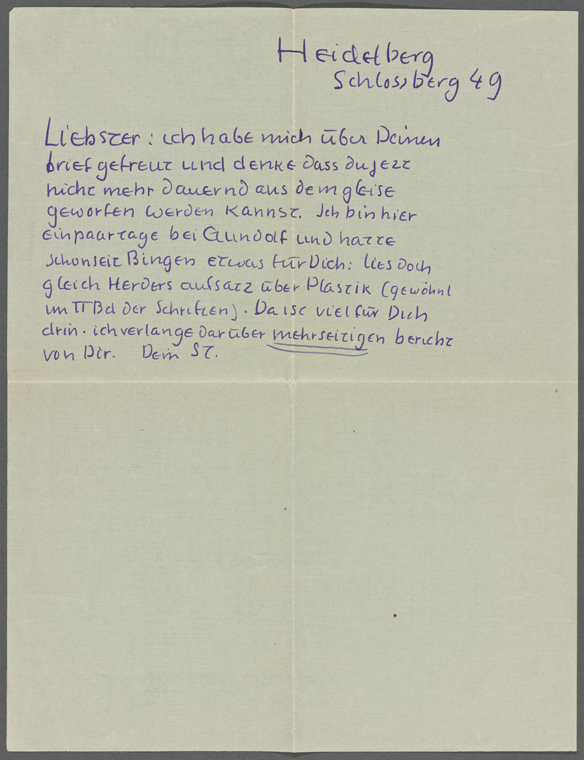 Heidelberg
Schlossberg 49
Liebster: ich habe mich über Deinen
brief gefreut und denke dass du jezt
nicht mehr dauernd aus dem gleise
geworfen werden kannst. Ich bin hier
ein paar tage bei Gundolf und hatte
schon seit Bingen etwas für Dich: lies doch
gleich Herders aufsatz über Plastik (gewöhnl
im II Bd der Schriften). Da ist viel für Dich
drin. ich verlange darüber mehrseitigen bericht
von Dir. Dein St.